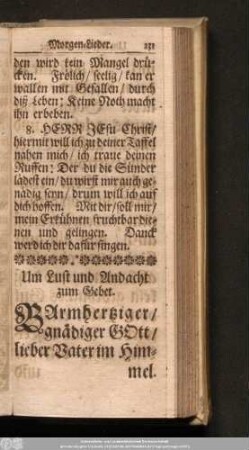 Morgen-Lieder. 151
den wird kein Mangel drü-
cken. Frölich/ seelig/ kan er
wallen mit Gefallen/ durch
diß Leben: Keine Noth macht
ihn erbeben.
8. HERR JEsu Christ/
hiermit will ich zu deiner Taffel
nahen mich/ ich traue deinen
Ruffen: Der du die Sünder
lädest ein/ du wirst mir auch ge-
nädig seyn/ drum will ich auf
dich hoffen. Mit dir/ soll mir/
mein Erkühnen fruchtbar die-
nen und gelingen. Danck
werd ich dir dafür singen.
Um Lust und Andacht
zum Gebet.
BArmhertziger/
gnädiger GOtt/
lieber Vater im Him-
mel.